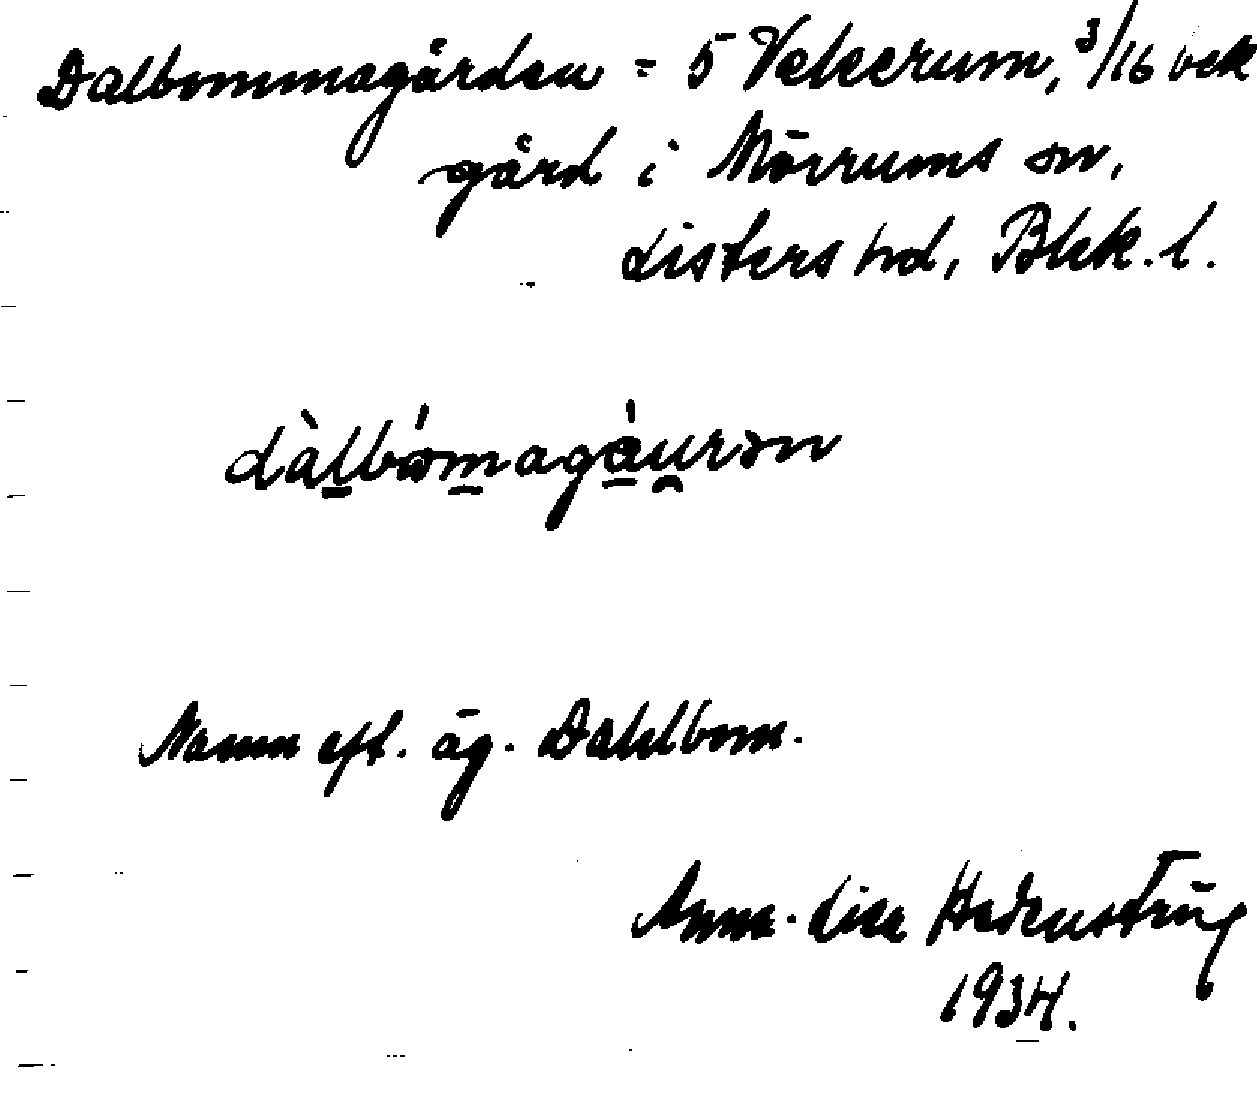 Dalbommagården = 5 Vekerum, 3/16 bek
gård i Mörrums sn,
Listers hd, Blek. l.
dàlbómagá̀u̯rən
Namn eft. äg. Dahlbom.
Anna-Lisa Hedenstrüg
1934.